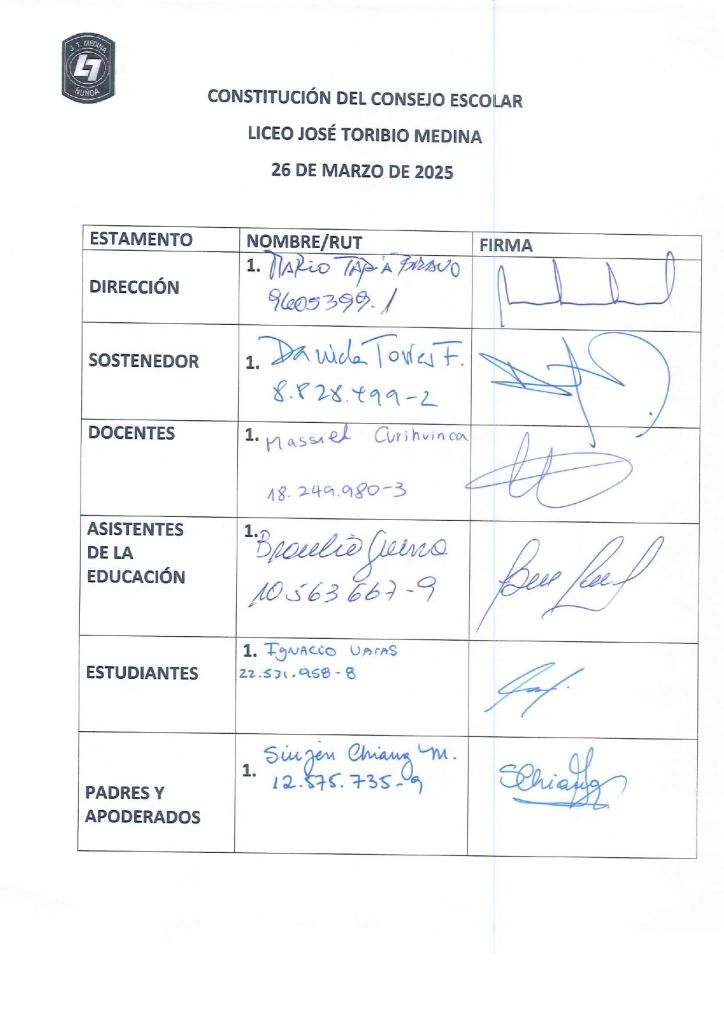 J. T. MEDINA
L7
ÑUÑOA
CONSTITUCIÓN DEL CONSEJO ESCOLAR
LICEO JOSÉ TORIBIO MEDINA
26 DE MARZO DE 2025
ESTAMENTO NOMBRE/RUT FIRMA
DIRECCIÓN
1. MARIO TAPIA BRAVO
9605399.1
SOSTENEDOR
1. Daniela Torres F.
8.828.499-2
DOCENTES
1. Massiel Curihuinca
18.249.980-3
ASISTENTES
DE LA
EDUCACIÓN
1. Braulio
10.563667-9
ESTUDIANTES
1. IGNACIO
22.531.958-8
PADRES Y
APODERADOS
1. Sinjen Chiang M.
12.575.735-9
SChiang